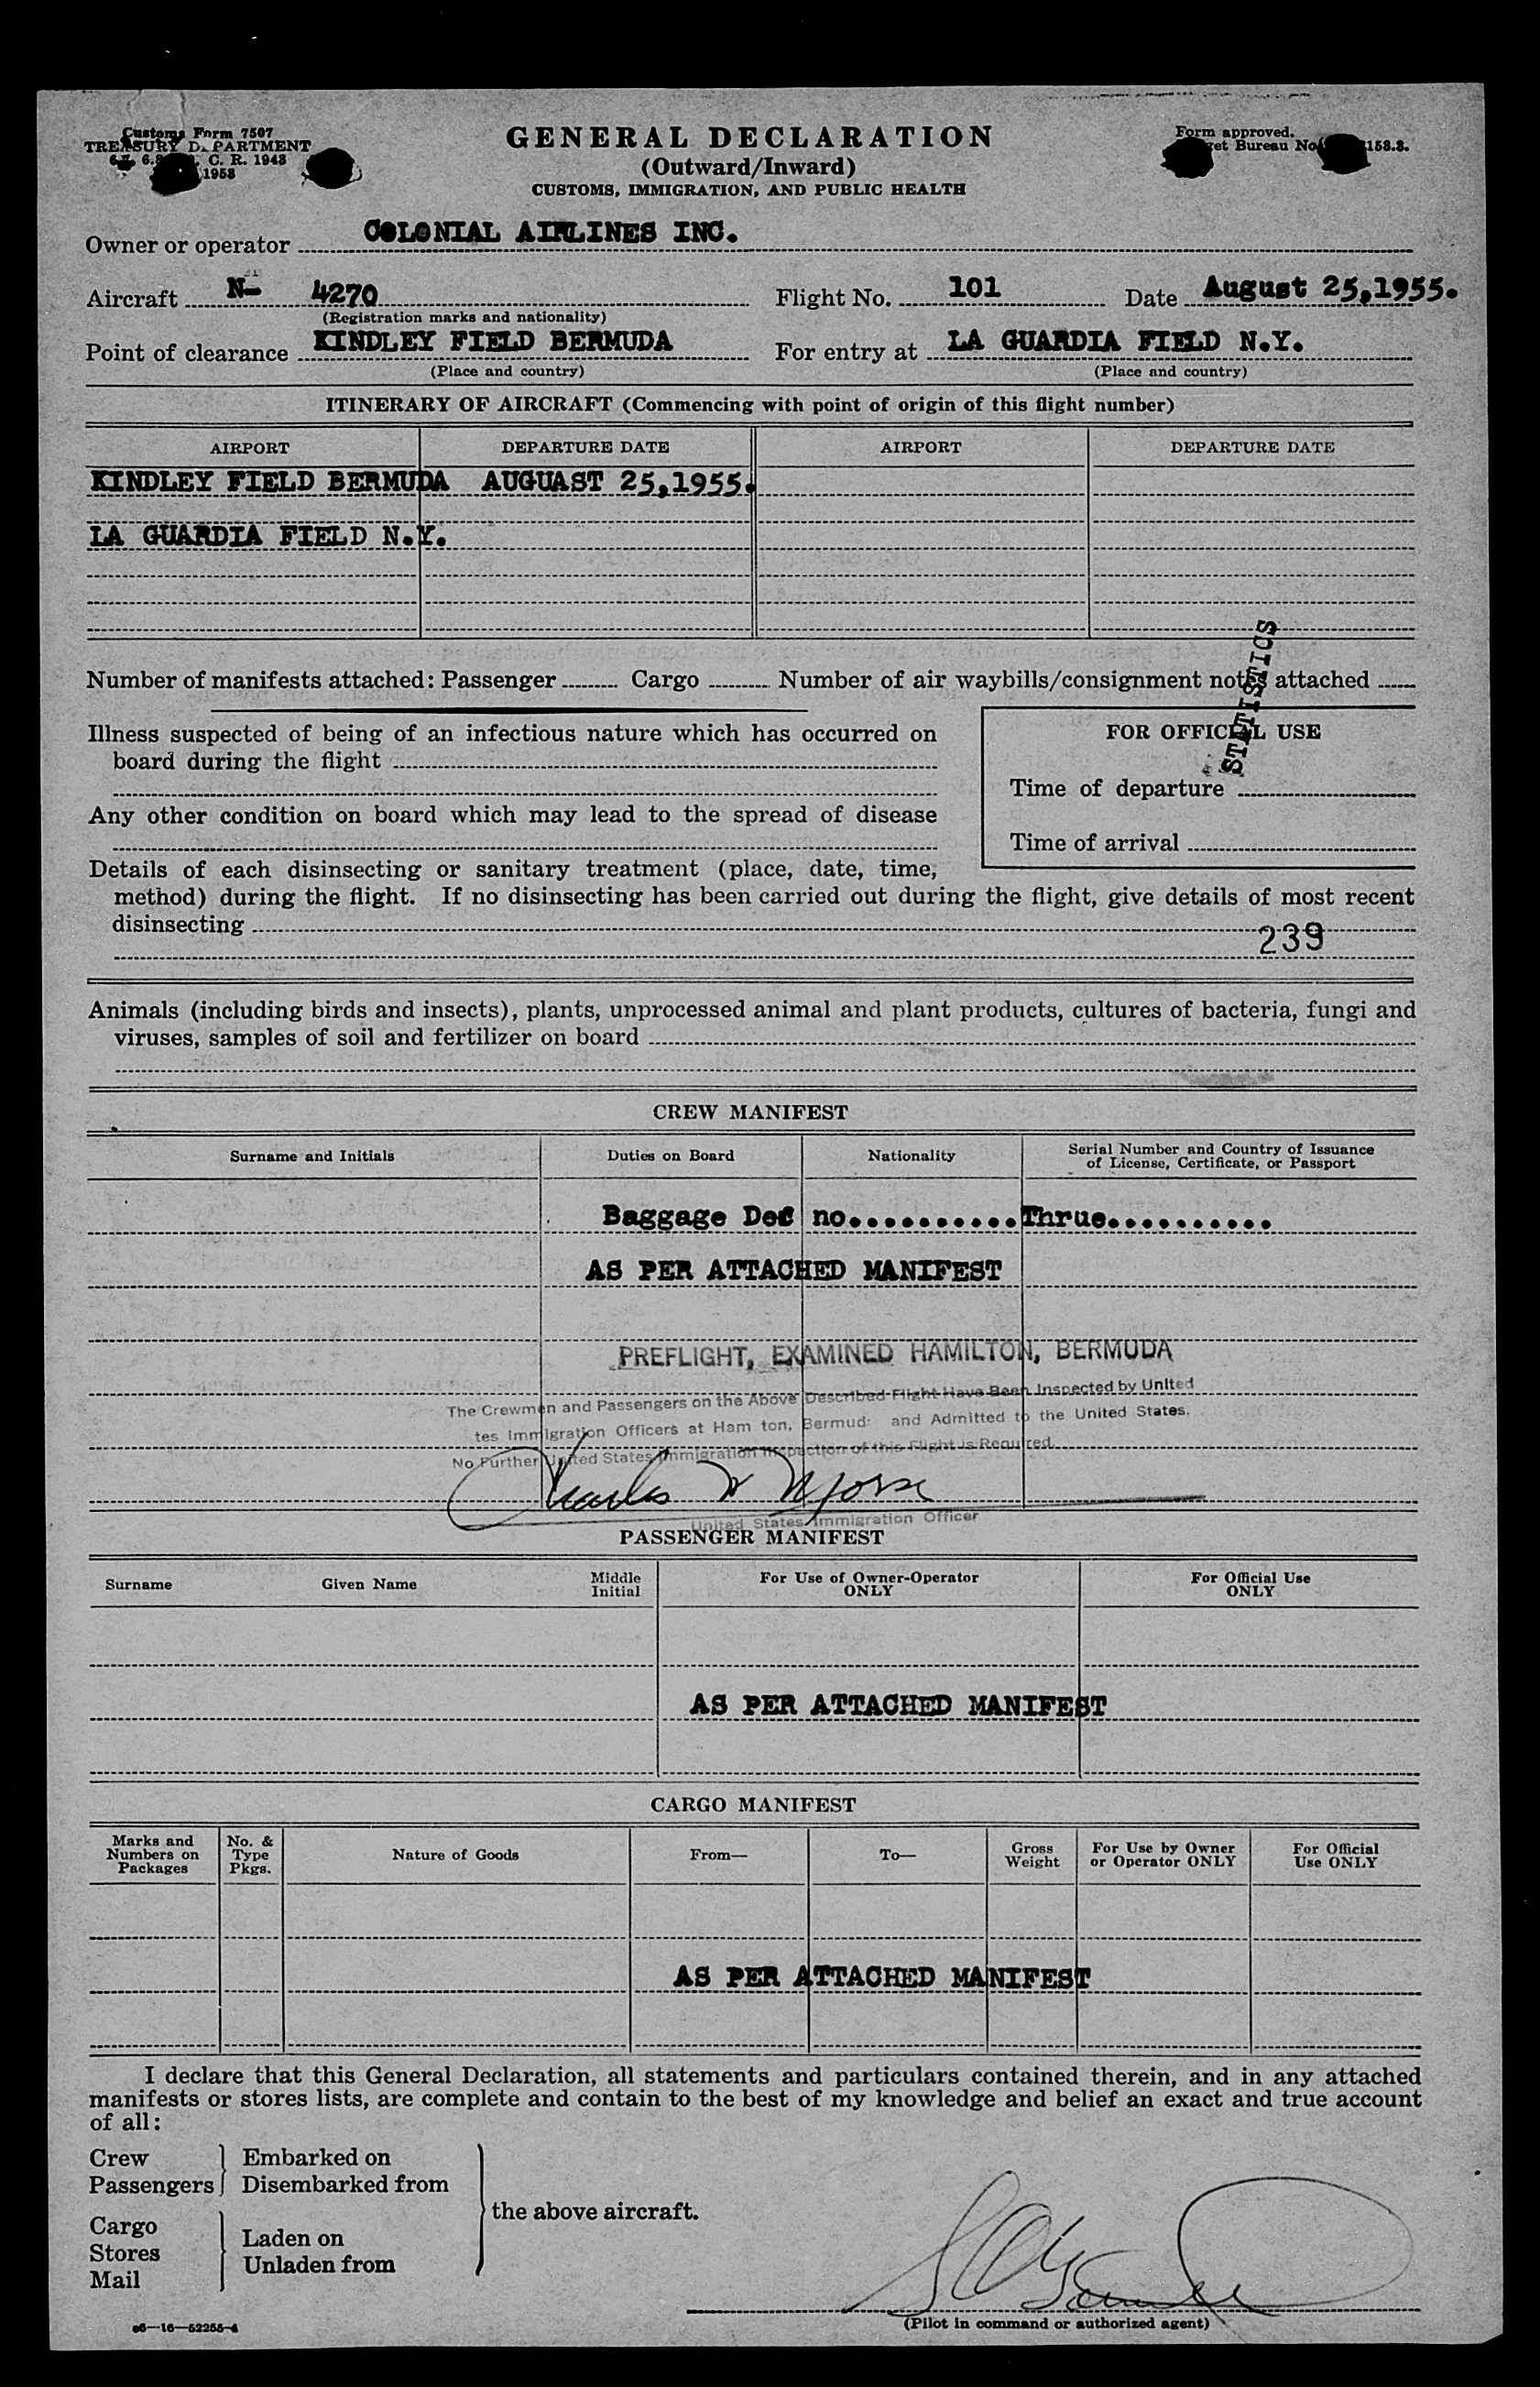 Customs Form 7507
TREASURY DEPARTMENT
C. R. 1943
1953
GENERAL DECLARATION
(Outward/Inward)
CUSTOMS, IMMIGRATION, AND PUBLIC HEALTH
Form approved.
Bureau No. 158.3.
Owner or operator COLONIAL AIRLINES INC.
Aircraft N- 4270 Flight No. 101 Date August 25,1955.
(Registration marks and nationality)
Point of clearance KINDLEY FIELD BERMUDA For entry at LA GUARDIA FIELD N.Y.
(Place and country) (Place and country)
ITINERARY OF AIRCRAFT (Commencing with point of origin of this flight number)
AIRPORT DEPARTURE DATE AIRPORT DEPARTURE DATE
KINDLEY FIELD BERMUDA AUGUAST 25,1955.
LA GUARDIA FIELD N.Y.
STATISTICS
Number of manifests attached: Passenger Cargo Number of air waybills/consignment notes attached
Illness suspected of being of an infectious nature which has occurred on
board during the flight
FOR OFFICIAL USE
Time of departure
Any other condition on board which may lead to the spread of disease
Time of arrival
Details of each disinsecting or sanitary treatment (place, date, time,
method) during the flight. If no disinsecting has been carried out during the flight, give details of most recent
disinsecting
239
Animals (including birds and insects), plants, unprocessed animal and plant products, cultures of bacteria, fungi and
viruses, samples of soil and fertilizer on board
CREW MANIFEST
Surname and Initials Duties on Board Nationality Serial Number and Country of Issuance
of License, Certificate, or Passport
Baggage Dec no...........Thrue..........
AS PER ATTACHED MANIFEST
PREFLIGHT, EXAMINED HAMILTON, BERMUDA
The Crewmen and Passengers on the Above Described Flight Have Been Inspected by United
tes Immigration Officers at Ham ton, Bermud and Admitted to the United States.
No Further United States Immigration Inspection of this Flight is Required.
Charles W Morse
United States Immigration Officer
PASSENGER MANIFEST
Surname Given Name Middle
Initial For Use of Owner-Operator
ONLY For Official Use
ONLY
AS PER ATTACHED MANIFEST
CARGO MANIFEST
Marks and
Numbers on
Packages No. &
Type
Pkgs. Nature of Goods From— To— Gross
Weight For Use by Owner
or Operator ONLY For Official
Use ONLY
AS PER ATTACHED MANIFEST
I declare that this General Declaration, all statements and particulars contained therein, and in any attached
manifests or stores lists, are complete and contain to the best of my knowledge and belief an exact and true account
of all:
Crew Embarked on
Passengers Disembarked from
the above aircraft.
Cargo
Laden on
Stores
Unladen from
Mail
(Pilot in command or authorized agent)
16—52255-4